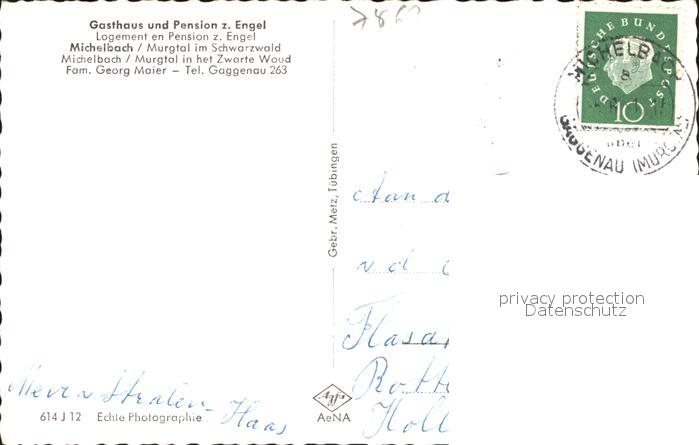 Gasthaus und Pension z. Engel
Logement en Pension z. Engel
Michelbach / Murgtal im Schwarzwald
Michelbach / Murgtal in het Zwarte Woud
Fam. Georg Maier – Tel. Gaggenau 263
DEUTSCHE BUNDESPOST
10
MICHELBACH
a
über
GAGGENAU (MURGTAL)
Gebr. Metz, Tübingen
v d
privacy protection
Datenschutz
Straten-
Haas
614 J 12 Echte Photographie
Agfa
AeNA